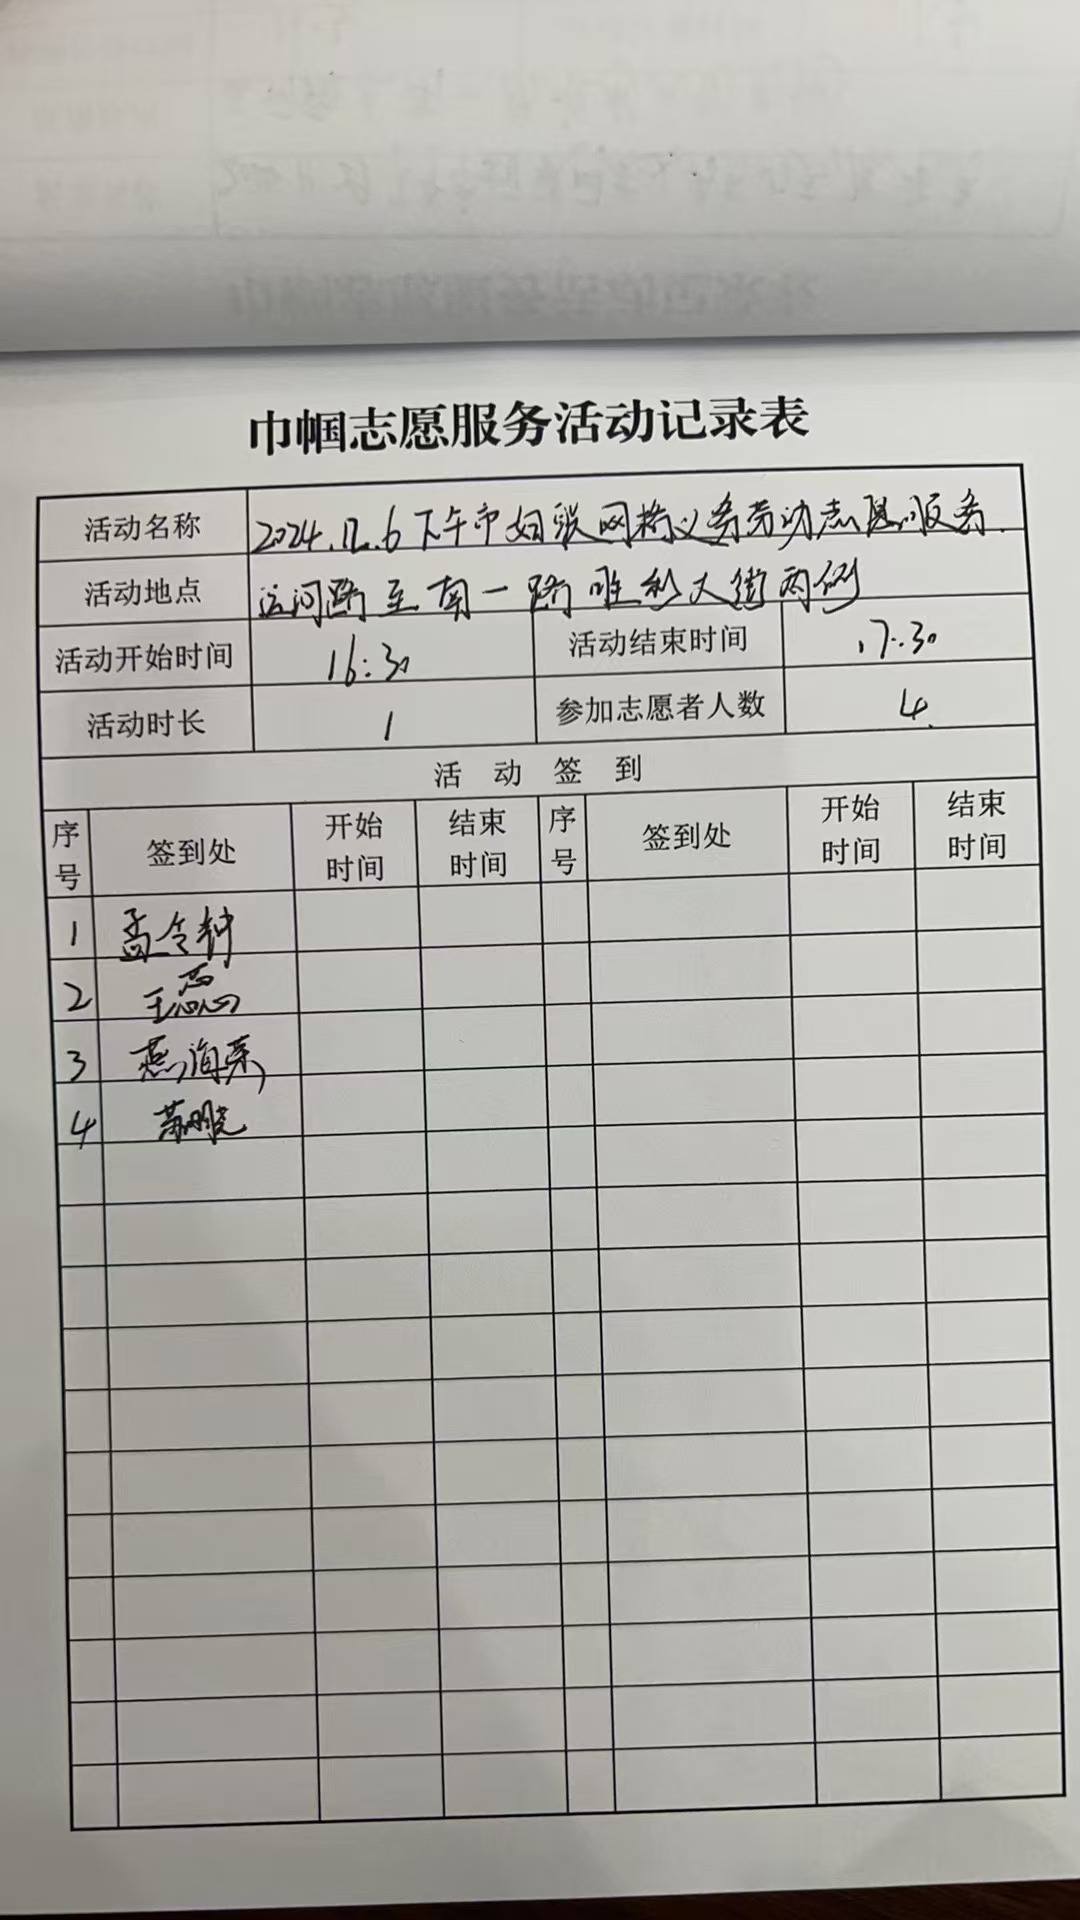 巾帼志愿服务活动记录表
活动名称 2024.12.6下午市妇联网格义务劳动志愿服务.
活动地点 运河路至南一路 大街两侧
活动开始时间 16:30 活动结束时间 17:30
活动时长 1 参加志愿者人数 4
活动签到
序号 签到处 开始时间 结束时间 序号 签到处 开始时间 结束时间
1 孟令
2 王蕊
3 燕海荣
4 苏晓